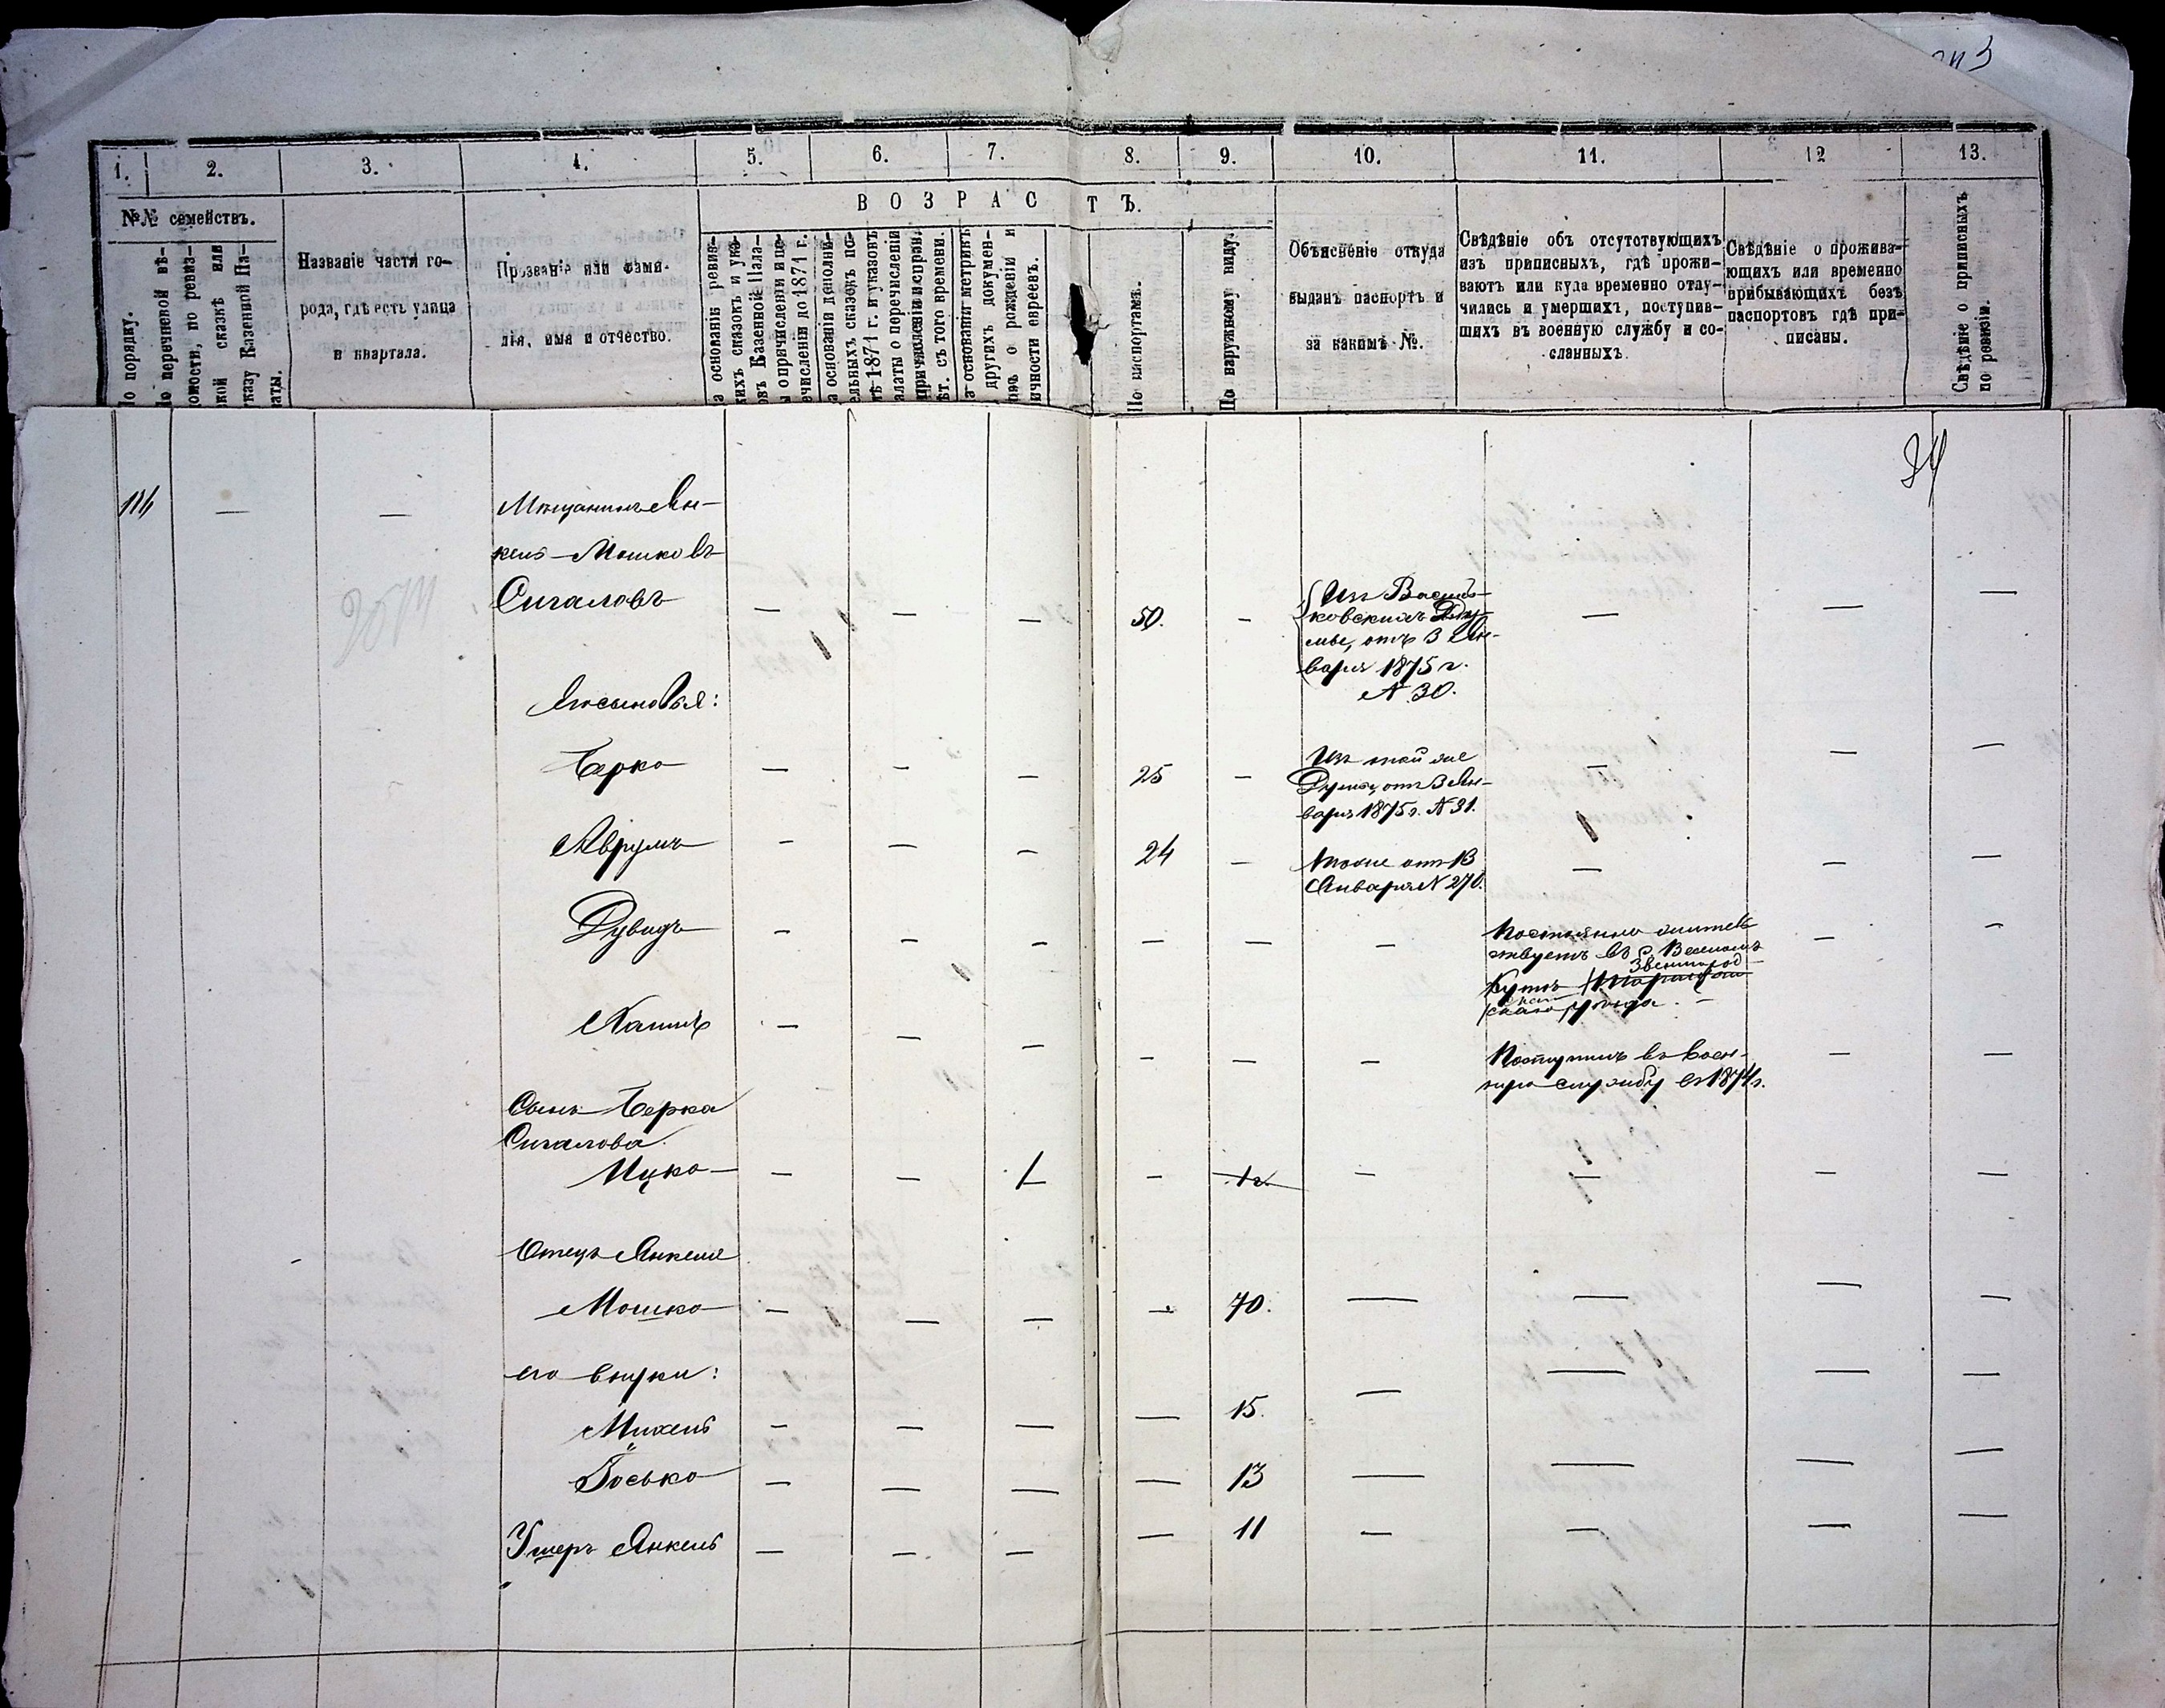 1.
2.
3.
4.
5.
6.
7.
8.
9.
10.
11.
12
13.
ВОЗРАСТЪ.
№№ семействъ.
По порядку.
По перечневой вѣ-
домости, по ревиз-
ской сказкѣ или
указу Казенной Па-
латы.
Названіе части го-
рода, гдѣ есть улица
и квартала.
Прозваніе или фами-
лія, имя и отчество.
На основаніи ревиз-
скихъ сказокъ и ука-
зовъ Казенной Пала-
ты о причисленіи и пе-
речисленіи до 1871 г.
На основаніи дополни-
тельныхъ сказокъ по-
слѣ 1871 г. и указовъ
Палаты о перечисленіи
и причисленіи
съ того времени.
На основаніи метрикъ
и другихъ докумен-
товъ о рожденіи и
личности евреевъ.
По паспортамъ.
По наружному виду.
Объясненіе откуда
выданъ паспортъ и
за какимъ №.
Свѣдѣніе объ отсутствующихъ
изъ приписныхъ, гдѣ прожи-
ваютъ или куда временно отлу-
чились и умершихъ, поступив-
шихъ въ военную службу и со-
сланныхъ.
Свѣдѣніе о прожива-
ющихъ или временно
прибывающихъ безъ
паспортовъ гдѣ при-
писаны.
Свѣдѣніе о приписныхъ
по ревизіи.
116 — — Мѣщанинъ Ян-
кель Мошковъ
Сигаловъ — — — 50. — Изъ Василь-
ковской Ду-
мы, отъ 3 Ян-
варя 1875 г.
№ 30. — — —
Его сыновья:
Берко — — — 25 — Изъ той же
Думы, отъ 3 Ян-
варя 1875 г. № 31. — — —
Аврумъ — — — 24 — Тоже отъ 13
Января № 270. — — —
Дувидъ — — — — — — Постоянно житель
ствуетъ въ с. Веселомъ
Звенигород
Кутѣ Таращан
скаго уѣзда. — — —
Хаимъ — — — — — — Поступилъ въ воен-
ную службу въ 1874 г. — —
Сынъ Берка
Сигалова
Ицко — — 1 — 1 г. — — — —
Отецъ Янкеля
Мошко — — — — 70. — — — —
его внуки:
Михель — — — — 15. — — — —
Іосько — — — — 13 — — — —
Ушеръ Янкель — — — — 11 — — — —